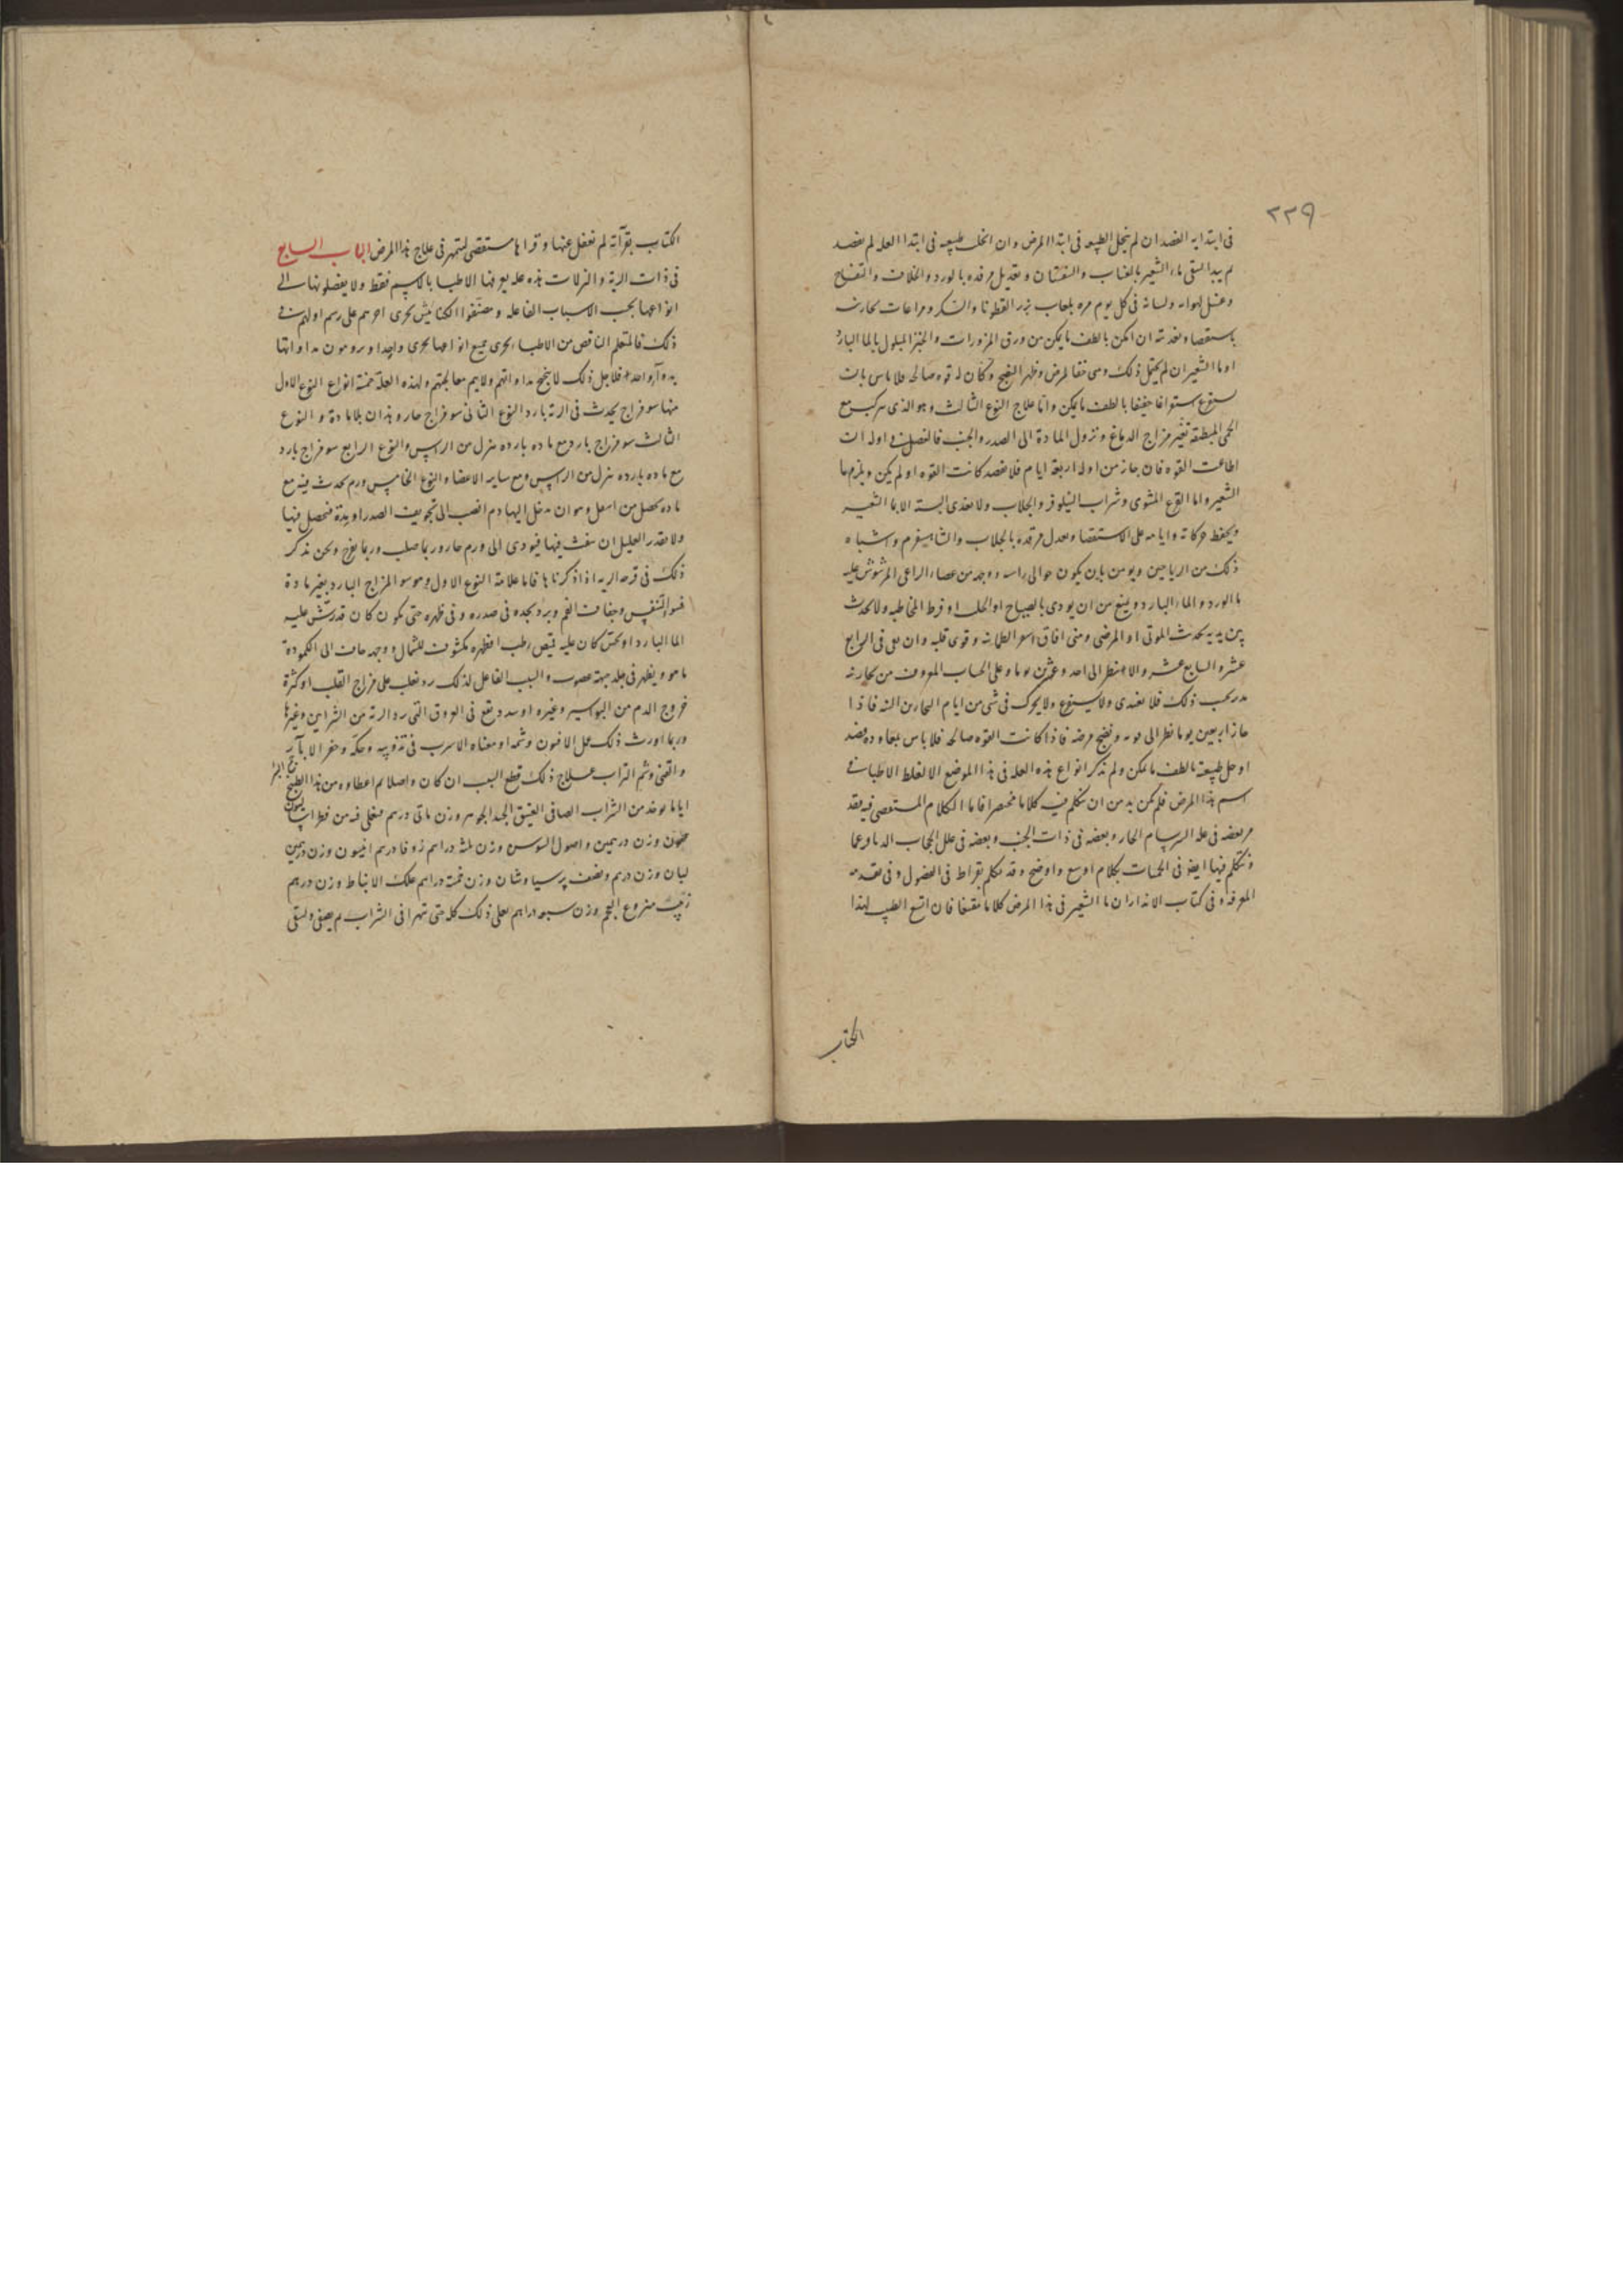 ٢٢٩
فى ابتدايه الفصد ان لم ينحل الطبيعه فى ابتدا المرض وان انحلت طبيعته فى ابتدا العله لم يفصد
ثم يبدا لسقى ماء الشعير بالعناب والسفستان وتعديل مرقده بالورد والخلاف والتفاح
وغسل لهواته ولسانه فى كل يوم مره بلعاب بزر القطونا والسكر ومراعات بحارينه
باستقصا وتغذيته ان امكن بالطف ما يمكن من ورق المزورات والخبز المبلول بالما البارد
او ما الشعير ان لم يحتمل ذلك ومتى خف المرض وظهر النضج وكان له قوه صالحه فلا باس بان
يستفرغ استفراغا خفيفا بالطف ما يمكن واما علاج النوع الثالث وهو الذى يتركب مع
الحمى المطبقه تغير مزاج الدماغ ونزول المادة الى الصدر والجنب فالفصد فى اوله ان
اطاعت القوه فان جاز من اوله اربعة ايام فلا يفصد كانت القوه او لم يكن ويلزم ما
الشعير واما القرع المشوى وشراب النيلوفر والجلاب ولا يغذى البته الا بما الشعير
ويحفظ حركاته وايامه على الاستقصا ويعدل مرقده بالجلاب والشاهسفرم واشباه
ذلك من الرياحين ويومن بان يكون حوالى راسه ووجهه من عصاء الراعى المرشوش عليه
ما الورد والماء البارد ويمنع من ان يوذى بالصياح او الجلب او فرط المخاطبه ولا يحدث
بين يديه بحديث الموتى او المرضى ومتى افاق اسعر الطمانه وقوى قلبه وان بقى فى الرابع
عشر والسابع عشر والا انتظر الى احد وعشرين يوما وعلى الحساب المعروف من بحارينه
مدبر بحسب ذلك فلا يغذى ولا يستفرغ ولا يحرك فى شى من ايام البحارين البته فاذا
جاز اربعين يوما نظر الى قوته ونضج مرضه فاذا كانت القوه صالحه فلا باس بمعاودة فصد
او حل طبيعته بالطف ما يمكن ولم نذكر انواع هذه العله فى هذا الموضع الا لغلط الاطبا فى
اسم هذا المرض فلم يكن بد من ان نتكلم فيه كلاما مختصرا فاما الكلام المستقصى فيه فقد
مر بعضه فى عله السرسام الحار وبعضه فى ذات الجنب وبعضه فى علل الحجاب الدماغ وما
ونتكلم فيها ايضا فى الحميات بكلام اوسع واوضح وقد تكلم بقراط فى الفصول وفى تقدمه
المعرفه وفى كتاب الانذار ان ما الشعير فى هذا المرض كلاما مقنعا فان اتسع الطبيب لهذا
الكتاب
الكتاب بقرآته لم نغفل عنها وقراها مستقصى ليتمهر فى علاج هذا المرض الباب السابع
فى ذات الرية والنزلات هذه عله يعرفها الاطبا بالاسم فقط ولا يفصلونها الى
انواعها بحسب الاسباب الفاعله وصنفوا الكنانيش يجرى اخرهم على رسم اولهم فى
ذلك فالمتعلم الناقص من الاطباء يجرى جميع انواعها مجرى واحدا ويرومون مداواتها
بدواء واحد فلاجل ذلك لا ينجح مداواتهم ولا يتم معالجتهم ولهذه العلة خمسة انواع النوع الاول
منها سو مزاج يحدث فى الرية بارد النوع الثانى سو مزاج حار وهذان بلا مادة والنوع
الثالث سو مزاج بارد مع ماده بارده تنزل من الراس والنوع الرابع سو مزاج بارد
مع ماده بارده تنزل من الراس ومع ساير الاعضاء والنوع الخامس ورم يحدث فيه مع
ماده تحصل من اسفل وهو ان تدخل اليها دم انصب الى تجويف الصدر او مدة فتحصل فيها
ولا يقدر العليل ان ينفث فيها فيودى الى ورم حار وربما صلب وربما تقرح ونحن نذكر
ذلك فى قرحه الريه اذا ذكرناها فاما علامة النوع الاول وهو سو المزاج البارد بغير مادة
فسو التنفس وجفاف الفم وبرد يجده فى صدره وفى ظهره حتى يكون كان قد رش عليه
الما البارد او يحس كان عليه قميص رطب او ظهره مكشوف للشمال ووجهه مايل الى الكمودة
ما هو ويظهر فى جلد جبهته عصوب والسبب الفاعل لذلك برد يغلب على مزاج القلب او كثرة
خروج الدم من البواسير وغيره او سدد يقع فى العروق التى ترد الرية من الشراين وغيرها
وربما اورث ذلك عمل الافيون وشمه او معناه الاسرب فى تذويبه وحكه وحفر الابار
والقنى وشم التراب علاج ذلك قطع السبب ان كان واصلا ثم اعطاوه من هذا الطبيخ
اياما يوخذ من الشراب الصافى العتيق الجيد الجوهر وزن مائى درهم فيغلى فيه من فطراساليون
وزن درهمين واصول السوسن وزن ثلثه دراهم زوفا درهم انيسون وزن درهمين
لبان وزن درهم ونصف برسياوشان وزن خمسة دراهم علك الانباط وزن درهم
زبيب منزوع العجم وزن سبعه دراهم يغلى ذلك كله حتى يتهرا فى الشراب ثم يصفى ويسقى